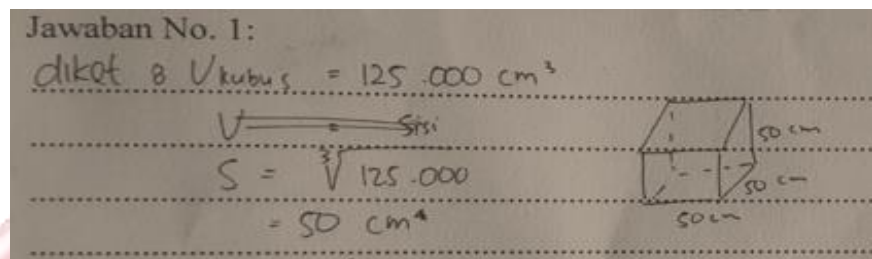 Jawaban No. 1:
diket : V kubus = 125.000 cm³
V = Sisi
S = ³√125.000
= 50 cm
50 cm
50 cm
50 cm